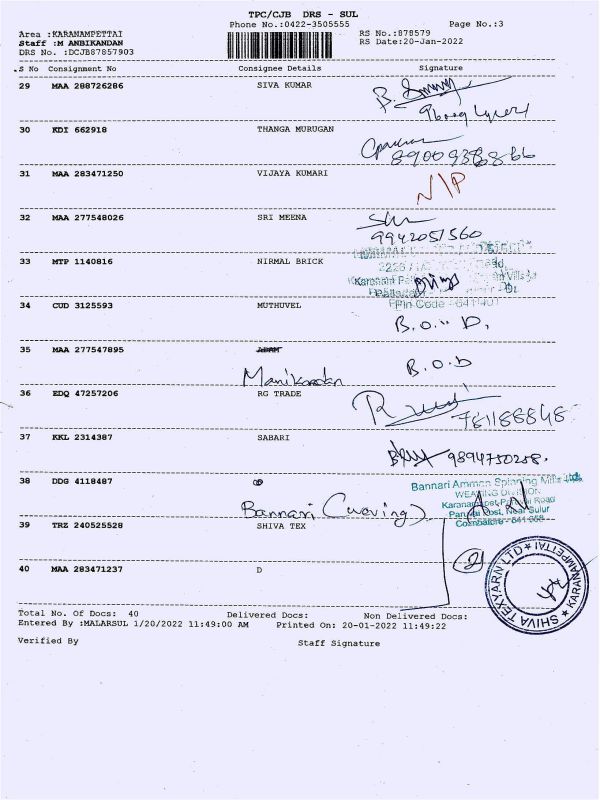 TPC/CJB DRS - SUL
Phone No.:0422-3505555 Page No.:3
Area :KARANAMPETTAI RS No.:878579
Staff :M ANBIKANDAN RS Date:20-Jan-2022
DRS No. :DCJB87857903
S No Consignment No Consignee Details Signature
29 MAA 288726286 SIVA KUMAR
30 KDI 662918 THANGA MURUGAN
31 MAA 283471250 VIJAYA KUMARI N/P
32 MAA 277548026 SRI MEENA
9942051560
33 MTP 1140816 NIRMAL BRICK
Pin Code - 641 401
34 CUD 3125593 MUTHUVEL
B.O.. D.
35 MAA 277547895
B.O.D
Manikandan
36 EDQ 47257206 RG TRADE
37 KKL 2314387 SABARI
9894750258.
38 DDG 4118487
Bannari Amman Spinning Mills Ltd.
WEAVING DIVISION
Bannari (weaving)
Near Sulur
Coimbatore - 641 658
39 TRZ 240525528 SHIVA TEX
40 MAA 283471237 D
21
SHIVA TEXYARN LTD ★ KARANAMPETTAI ★
Total No. Of Docs: 40 Delivered Docs: Non Delivered Docs:
Entered By :MALARSUL 1/20/2022 11:49:00 AM Printed On: 20-01-2022 11:49:22
Verified By Staff Signature